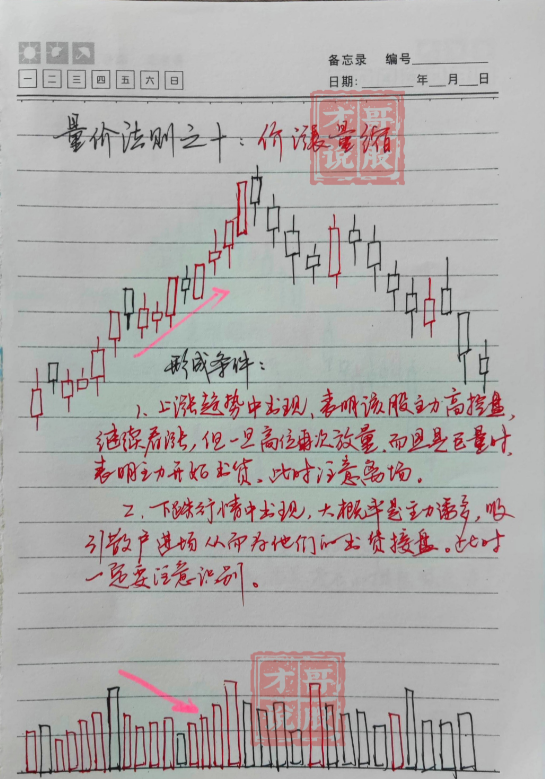 备忘录 编号
一 二 三 四 五 六 日
日期: 年 月 日
量价法则之十：价涨量缩
才哥说股
形成条件：
1、上涨趋势中出现，表明该股主力高控盘，
继续看涨，但一旦高位再次放量，而且是巨量时，
表明主力开始出货。此时注意离场。
2、下跌行情中出现，大概率是主力诱多，吸
引散户进场从而为他们的出货接盘。此时
一定要注意识别。
才哥说股